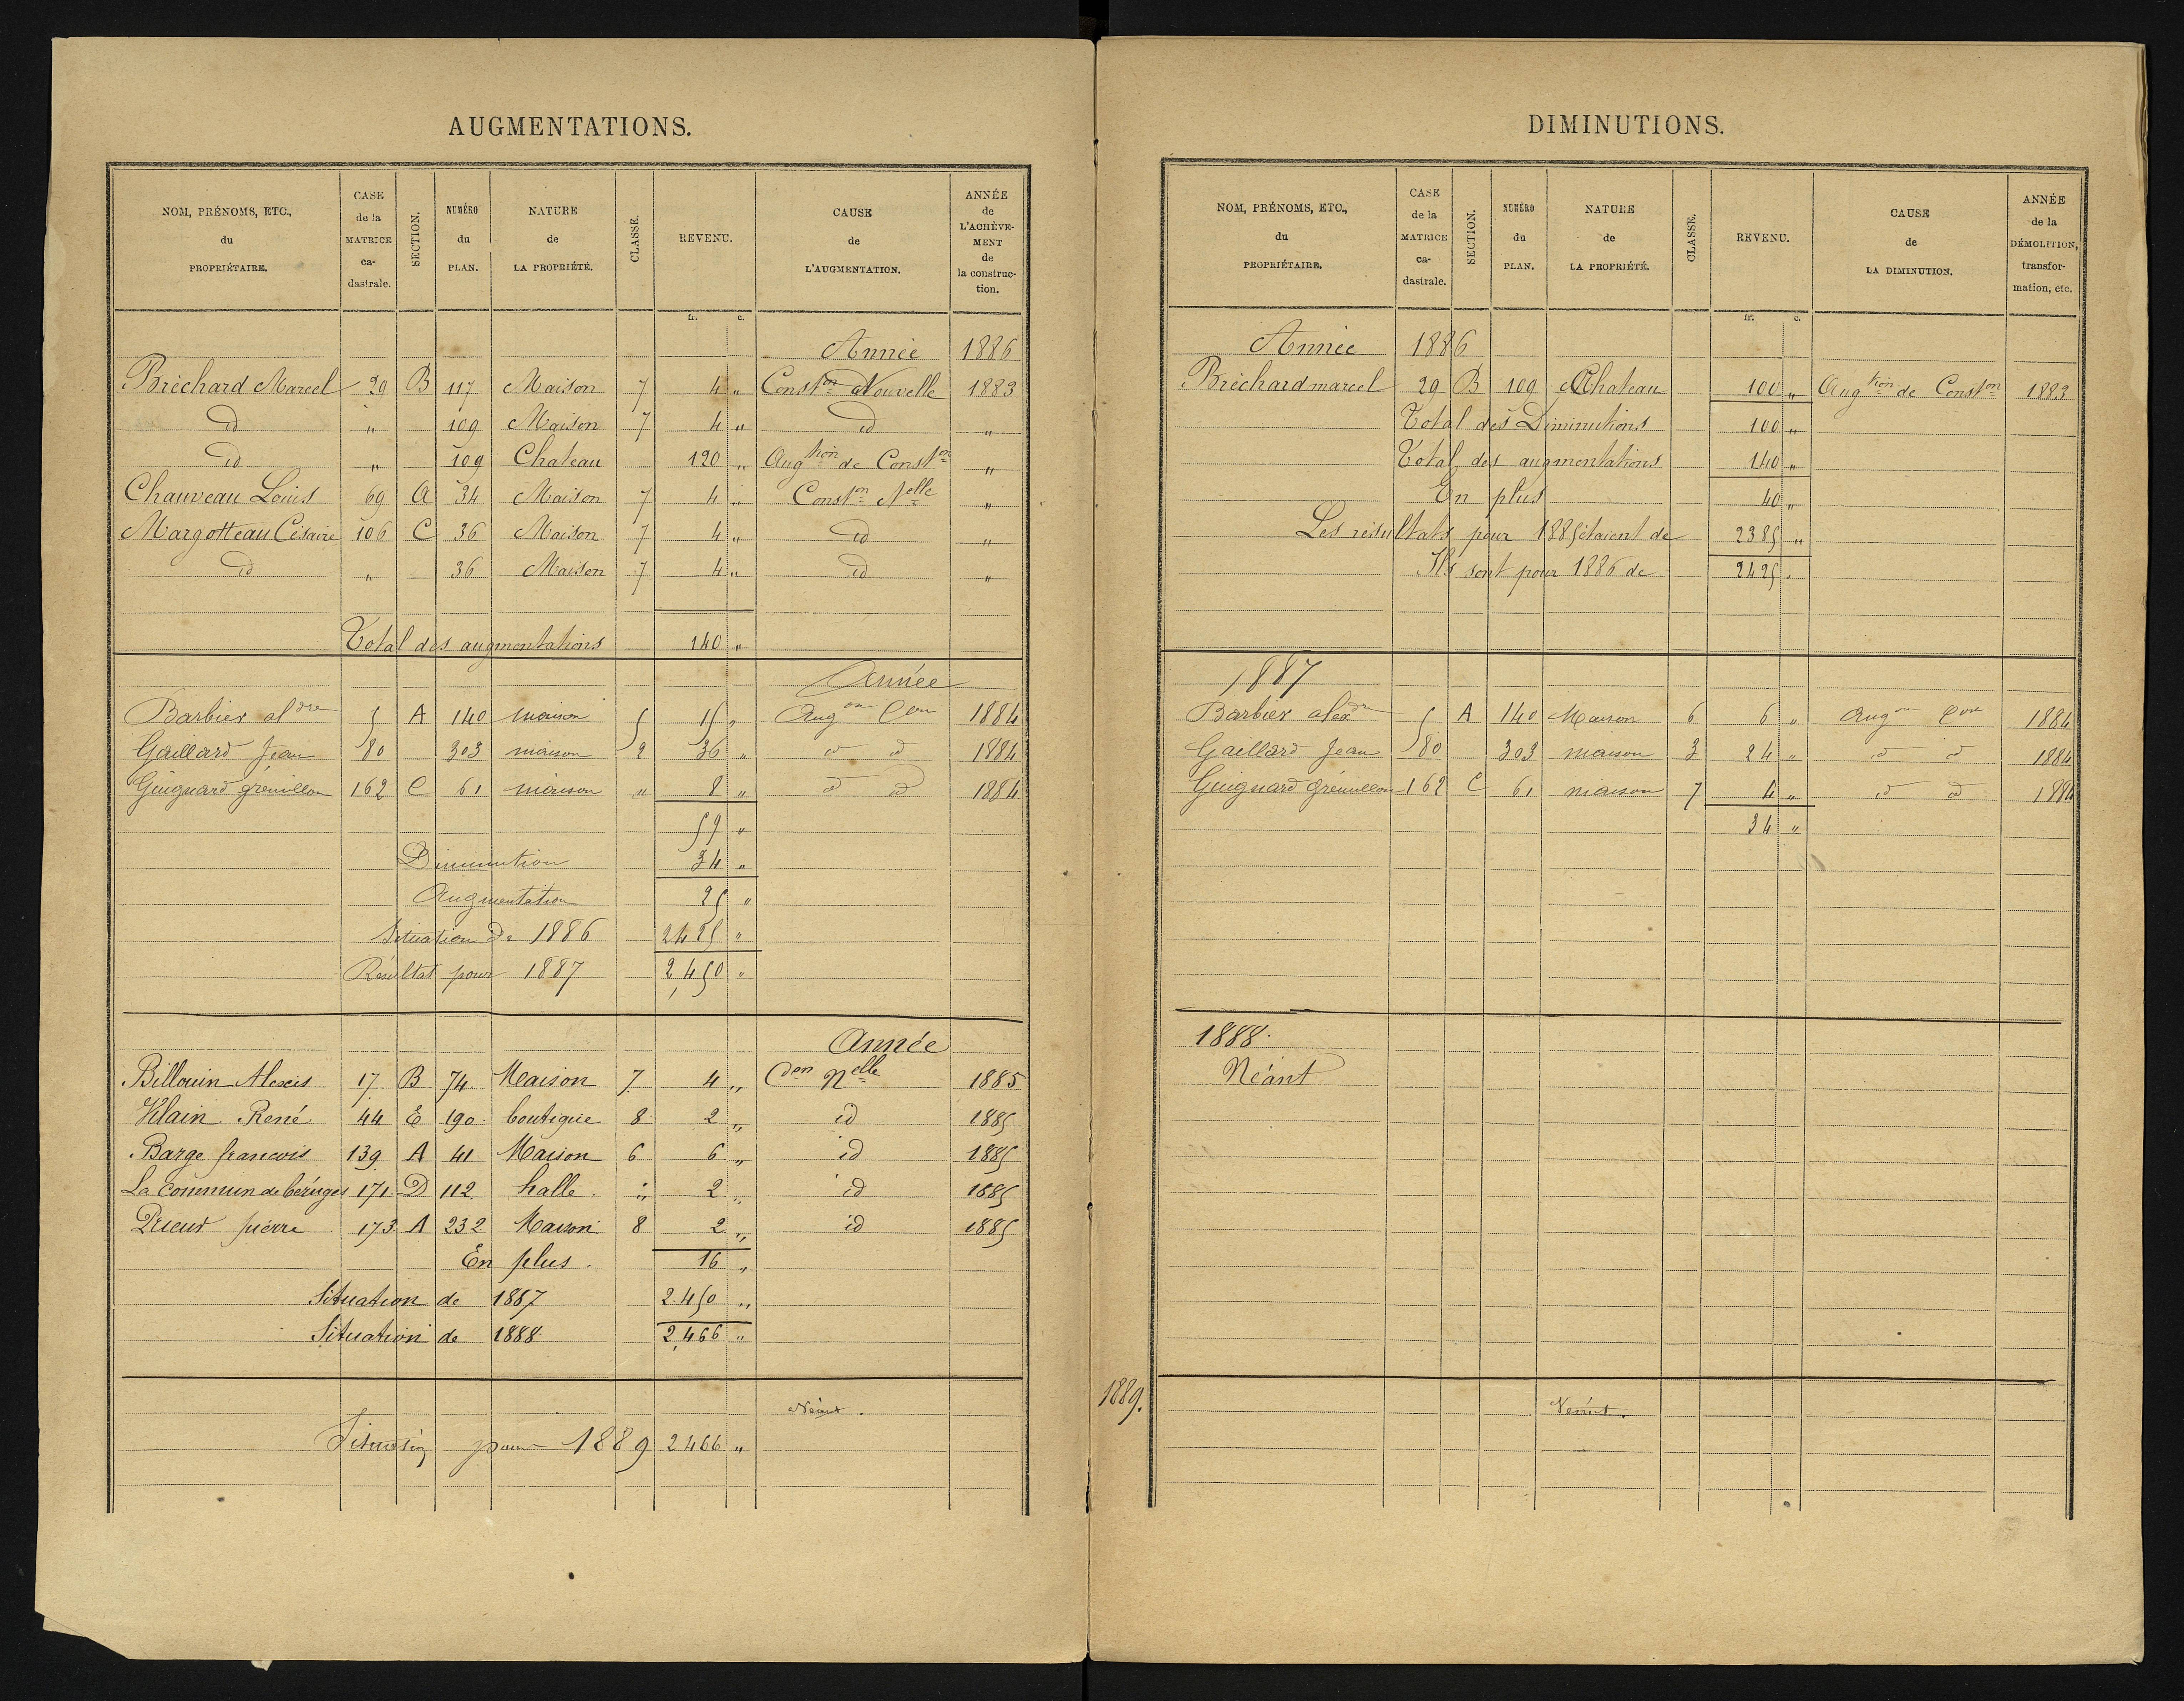 AUGMENTATIONS.
NOM, PRÉNOMS, ETC., du PROPRIÉTAIRE.
CASE de la MATRICE ca-dastrale.
SECTION.
NUMÉRO du PLAN.
NATURE de LA PROPRIÉTÉ.
CLASSE.
REVENU.
CAUSE de L'AUGMENTATION.
ANNÉE de L'ACHÈVE-MENT de la construc-tion.
fr. c.
Année 1886
Bréchard Marcel 29 B 117 Maison 7 4 " Conston Nouvelle 1883
id " 109 Maison 7 4 " id "
id " 109 Chateau 120 " Augtion de Conston "
Chauveau Louis 69 A 34 Maison 7 4 " Conston Nelle "
Margotteau Césaire 106 C 36 Maison 7 4 " id "
id " 36 Maison 7 4 " id "
Total des augmentations 140 "
Année
Barbier aldre 5 A 140 maison 5 15 " Augon Con 1884
Gaillard Jean 80 303 maison 2 36 " id id 1884
Guignard grémillon 162 C 61 maison " 8 " id id 1884
59 "
Diminution 34 "
Augmentation 25 "
Situation de 1886 2425 "
Résultat pour 1887 2,450 "
Année
Billouin Alexis 17 B 74 Maison 7 4 " Con Nelle 1885
Vélain René 44 E 190 boutique 8 2 " id 1885
Barge francois 139 A 41 Maison 6 6 " id 1885
La commun de béruges 171 D 112 halle " 2 " id 1885
Prieur pierre 173 A 232 Maison 8 2 " id 1885
En plus. 16 "
Situation de 1887 2.450 "
Situation de 1888 2,466 "
Néant.
Situation pour 1889 2466 "
DIMINUTIONS.
NOM, PRÉNOMS, ETC., du PROPRIÉTAIRE.
CASE de la MATRICE ca-dastrale.
SECTION.
NUMÉRO du PLAN.
NATURE de LA PROPRIÉTÉ.
CLASSE.
REVENU.
CAUSE de LA DIMINUTION.
ANNÉE de la DÉMOLITION, transfor-mation, etc.
fr. c.
Année 1886
Bréchard marcel 29 B 109 Chateau 100 " Augtion de Conston 1883
Total des Diminutions 100 "
Total des augmentations 140 "
En plus 40 "
Les résultats pour 1885 étaient de 2385 "
Ils sont pour 1886 de 2425 "
1887
Barbier alexdre 5 A 140 Maison 6 6 " Augon Con 1884
Gaillard Jean 80 303 maison 3 24 " id id 1884
Guignard Grémillon 162 C 61 maison 7 4 " id id 1884
34 "
1888.
Néant
1889.
Néant.